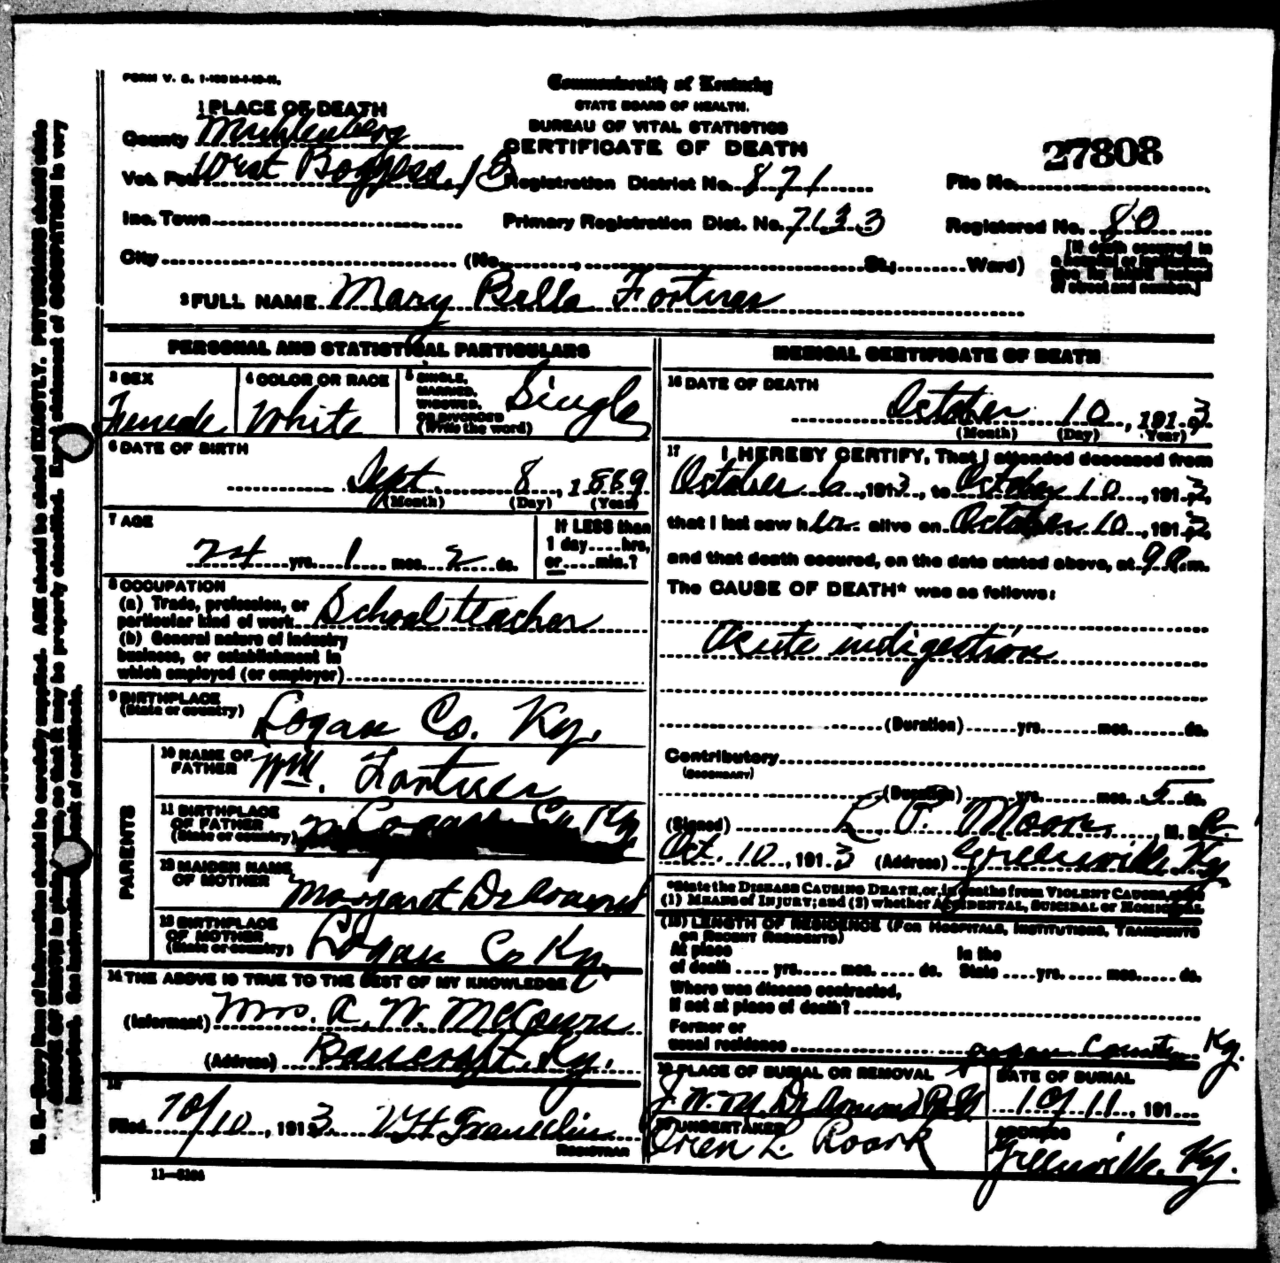 FORM V. S. 1-
Commonwealth of Kentucky
STATE BOARD OF HEALTH.
BUREAU OF VITAL STATISTICS
CERTIFICATE OF DEATH
1 PLACE OF DEATH
County Muhlenberg
Vot. Pct. West Boggess 13
Registration District No. 871
File No. 27808
Inc. Town
Primary Registration Dist. No. 7133
Registered No. 80
City (No. , St.; Ward)
[If death occurred in
a hospital or institution,
give its NAME instead
of street and number.]
2 FULL NAME Mary Belle
PERSONAL AND STATISTICAL PARTICULARS
3 SEX
Female
4 COLOR OR RACE
White
5 SINGLE,
MARRIED,
WIDOWED,
OR DIVORCED
(Write the word)
Single
6 DATE OF BIRTH
Sept. 8, 1889
(Month) (Day) (Year)
7 AGE
24 yrs. 1 mos. 2 ds.
If LESS than
1 day....hrs.
or....min.?
8 OCCUPATION
(a) Trade, profession, or
particular kind of work School teacher
(b) General nature of industry
business, or establishment in
which employed (or employer)
9 BIRTHPLACE
(State or country)
Logan Co. Ky.
PARENTS
10 NAME OF
FATHER
Wm.
11 BIRTHPLACE
OF FATHER
(State or country)
Logan Co Ky
12 MAIDEN NAME
OF MOTHER
Margaret
13 BIRTHPLACE
OF MOTHER
(State or country)
Logan Co Ky.
14 THE ABOVE IS TRUE TO THE BEST OF MY KNOWLEDGE
(Informant) Mrs. A. W.
(Address) Bancroft Ky.
15
Filed 10/10, 1913. Franklin
REGISTRAR
11-
MEDICAL CERTIFICATE OF DEATH
16 DATE OF DEATH
October 10, 1913
(Month) (Day) (Year)
17 I HEREBY CERTIFY, That I attended deceased from
October 6, 1913, to October 10, 1913,
that I last saw her alive on October 10, 1913,
and that death occured, on the date stated above, at 9 a.m.
The CAUSE OF DEATH* was as follows:
Acute indigestion
(Duration) yrs. mos. ds.
Contributory
(SECONDARY)
(Duration) yrs. mos. 5 ds.
(Signed) L. P. Moore, M. D.
Oct. 10, 1913 (Address) Greenville Ky.
*State the DISEASE CAUSING DEATH, or, in deaths from VIOLENT CAUSES, state
(1) MEANS OF INJURY; and (2) whether ACCIDENTAL, SUICIDAL or HOMICIDAL
(18) LENGTH OF RESIDENCE (FOR HOSPITALS, INSTITUTIONS, TRANSIENTS
OR RECENT RESIDENTS)
At place
of death yrs. mos. ds.
In the
State yrs. mos. ds.
Where was disease contracted,
if not at place of death?
Former or
usual residence Logan County Ky.
19 PLACE OF BURIAL OR REMOVAL
J. W. M.
DATE OF BURIAL
10/11, 191
20 UNDERTAKER
Orien L. Roark
ADDRESS
Greenville, Ky.
N. B.—Every item of information should be carefully supplied. AGE should be stated EXACTLY. PHYSICIANS should state
CAUSE OF DEATH in plain terms, so that it may be properly classified. Exact statement of OCCUPATION is very
important. See instructions on back of certificate.